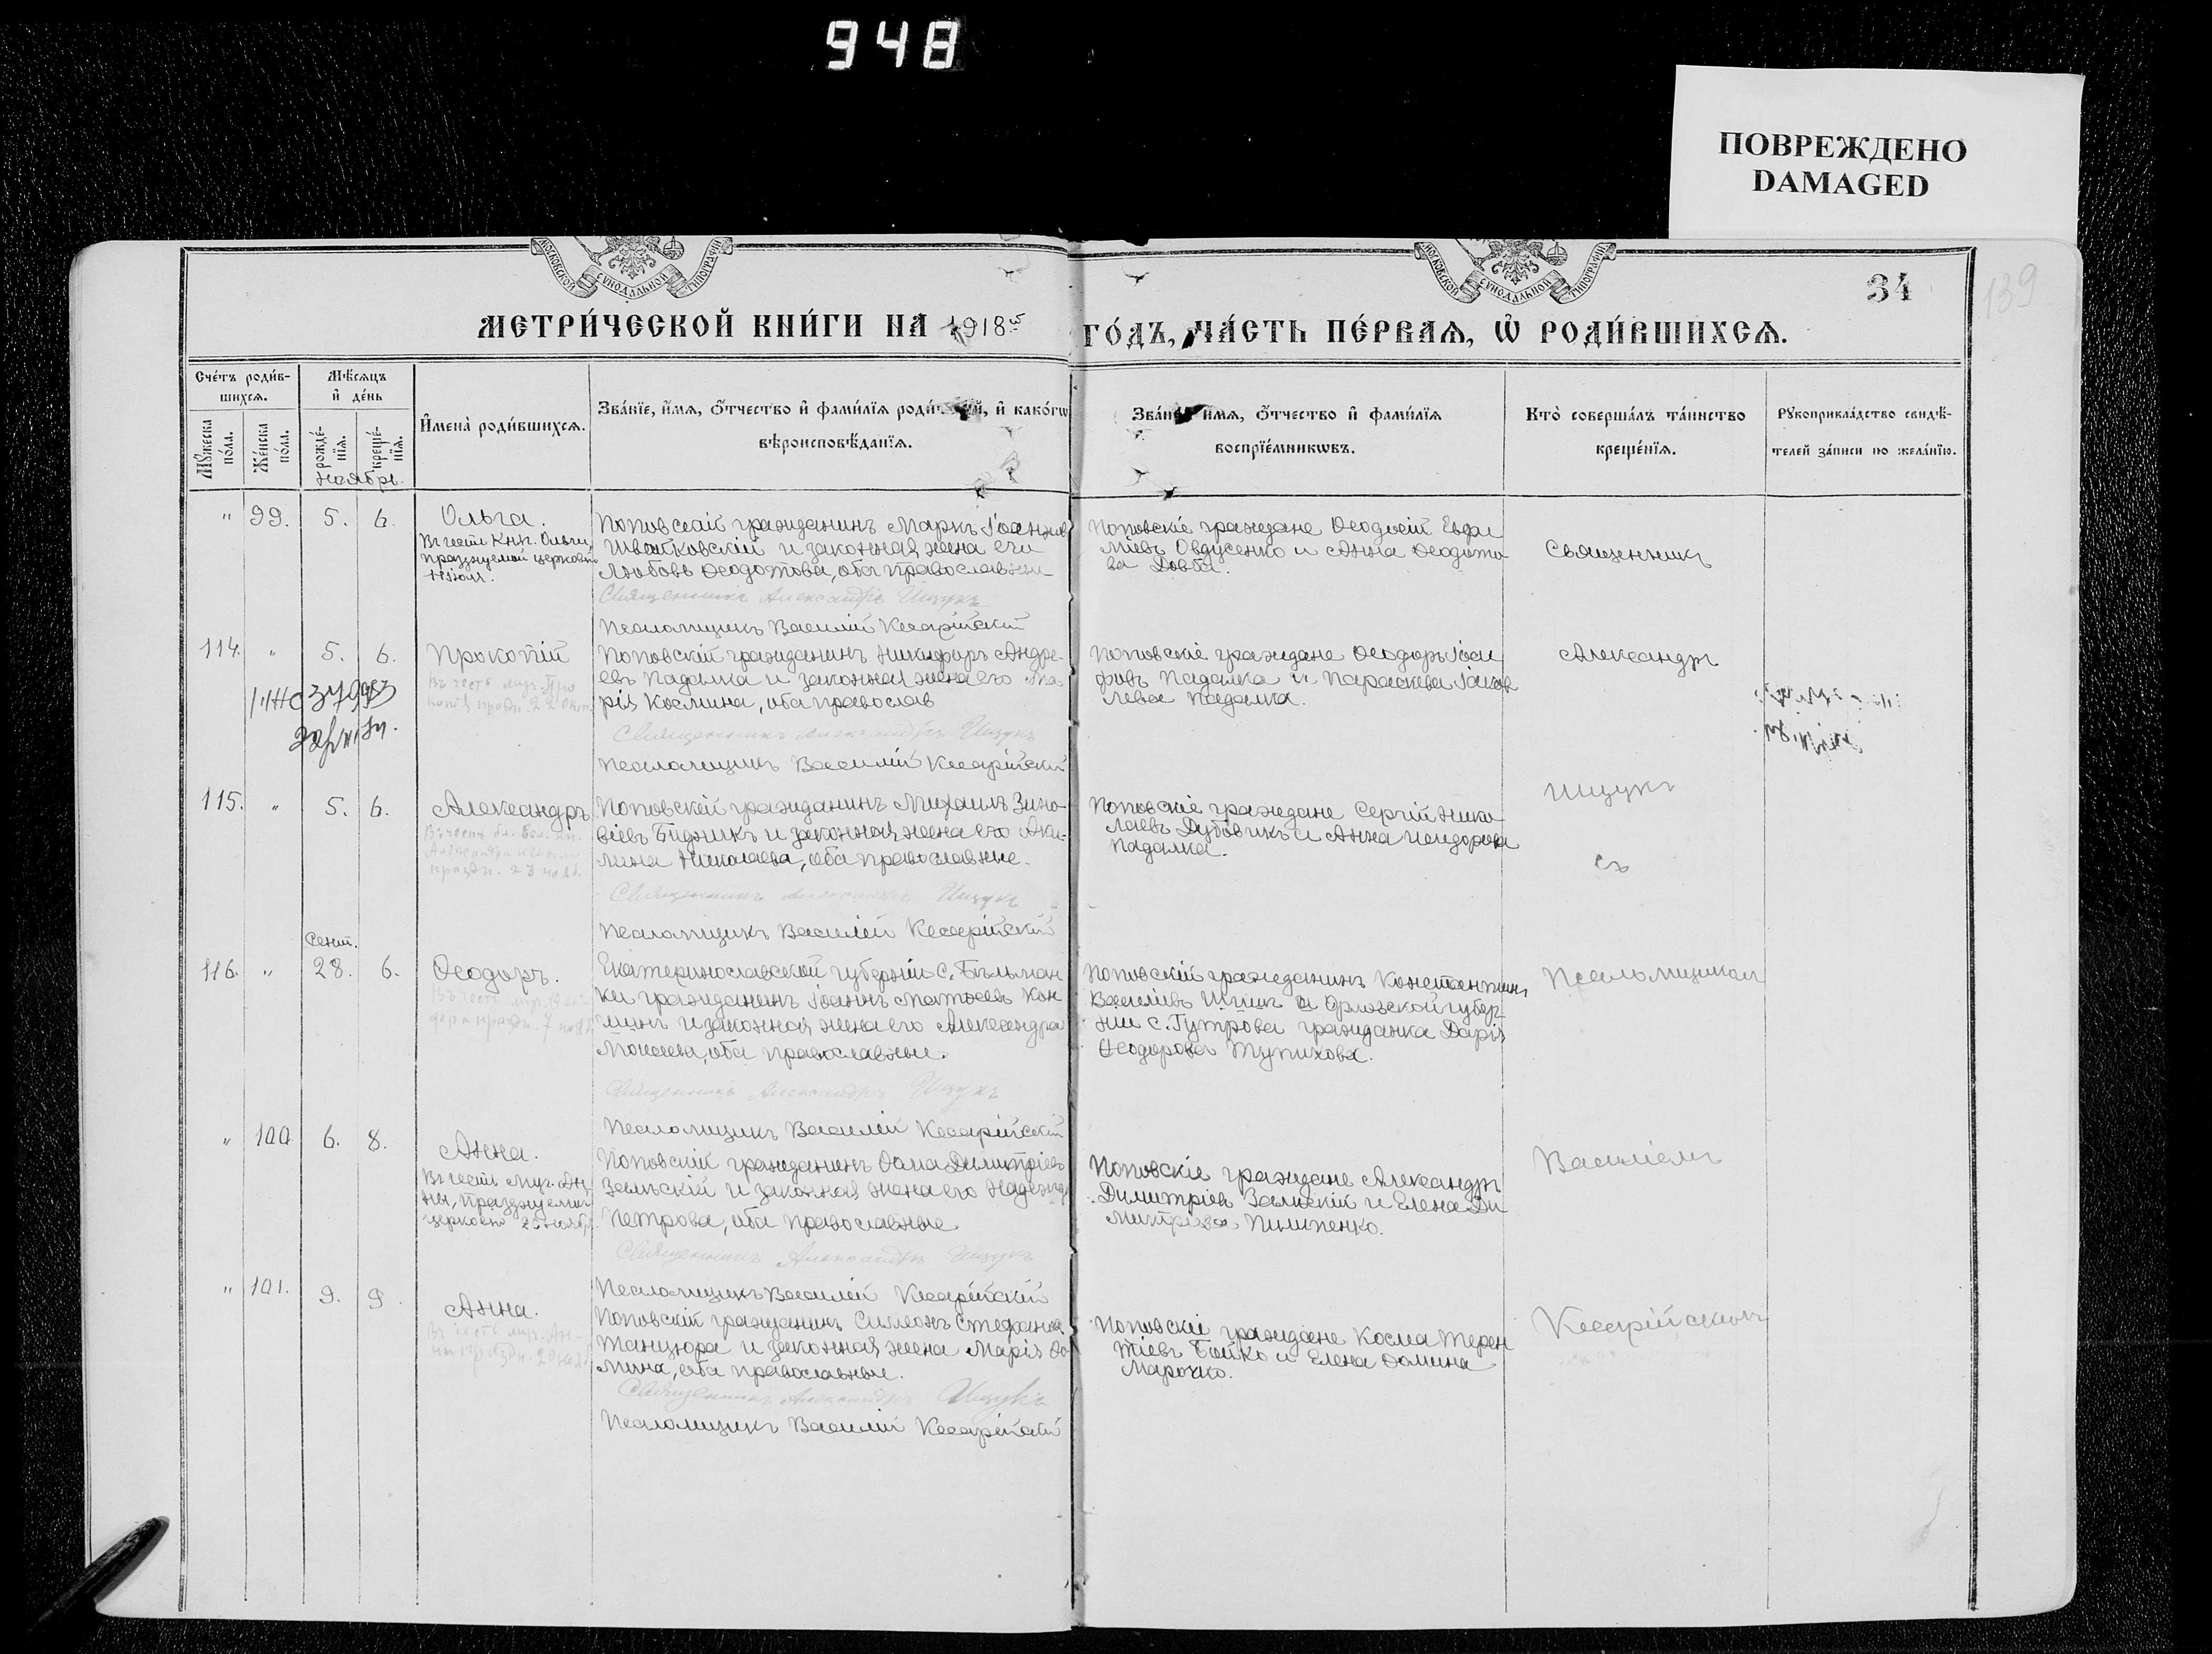 948
ПОВРЕЖДЕНО
DAMAGED
МОСКОВСКОЙ СѴНОДАЛЬНОЙ ТИПОГРАФІИ
МОСКОВСКОЙ СѴНОДАЛЬНОЙ ТИПОГРАФІИ
34
139
МЕТРИ́ЧЕСКОЙ КНИ́ГИ НА 1918й ГО́ДЪ, ЧА́СТЬ ПЕ́РВАЯ, Ѡ РОДИ́ВШИХСЯ.
Сче́тъ роди́в-
шихся.
Му́жеска по́ла.
Же́нска по́ла.
Мѣ́сяцъ
и҆ де́нь
рожде́-
нія.
креще́-
нія.
И҆мена̀ роди́вшихся.
Зва́нїе, и҆́мя, ѻ҆́тчество и҆ фами́лїя роди́телей, и҆ како́гѡ
вѣроисповѣ́данїя.
Зва́нїе, и҆́мя, ѻ҆́тчество и҆ фами́лїя
воспрїе́мникѡвъ.
Кто̀ соверша́лъ та́инство
креще́нїя.
Рꙋкоприкла́дство свидѣ́-
телей за́писи по жела́нїю.
Ноябрь.
" 99. 5. 6. Ольга.
Въ честь Княг. Ольги,
празднуемой церковію
11 Іюля.
Поповскій гражданинъ Маркъ Іоаннов
Швайковскій и законная жена его
Любовь Ѳеодотова, оба православные
Священникъ Александръ Ищукъ
Псаломщикъ Василій Кесарійскій
Поповскіе граждане Ѳеодосій Евфи
міевъ Овдусенко и Анна Ѳеодото
ва Довба.
Священникъ
114. " 5. 6. Прокопій
Въ честь муч. Про
копія празд. 22 Окт.
Поповскій гражданинъ Никифоръ Андре-
евъ Падалка и законная жена его Ма-
рія Космина, оба православ
Священникъ Александръ Ищукъ
Псаломщикъ Василій Кесарійскій
Поповскіе граждане Ѳеодоръ Іоси
фовъ Падалка и Параскева Іаков
лева Падалка.
Александръ
115. " 5. 6. Александръ
Въ честь бл. Вел. Кн.
Александра Невск.
празд. 23 нояб.
Поповскій гражданинъ Михаилъ Зино-
віевъ Бидникъ и законная жена его Аки-
лина Николаева, оба православные.
Священникъ Александръ Ищукъ
Псаломщикъ Василій Кесарійскій
Поповскіе граждане Сергій Нико
лаевъ Дубовикъ и Анна Исидорова
Падалка.
Ищукъ
съ
Сент.
116. " 28. 6. Ѳеодоръ.
Екатеринославской губерніи с. Бѣльман
ки гражданинъ Іоаннъ Матѳеевъ Кон
минъ и законная жена его Александра
Моисеева, оба православные.
Священникъ Александръ Ищукъ
Псаломщикъ Василій Кесарійскій
Поповскій гражданинъ Константинъ
Василіевъ Шишъ и Орловской губер-
ніи с. Гутрова гражданка Дарія
Ѳеодорова Тупикова.
Псаломщикомъ
" 100 6. 8. Анна.
Въ честь муч. Ан
ны, празднуемой
церковію 20 нояб.
Поповскій гражданинъ Ѳома Димитріевъ
Зальскій и законная жена его Надежда
Петрова, оба православные
Священникъ Александръ Ищукъ
Псаломщикъ Василій Кесарійскій
Поповскіе граждане Александръ
Димитріевъ Зальскій и Елена Ди
митріева Пилипенко.
Василіемъ
" 101. 9. 9. Анна.
Въ честь муч. Ан-
ны празд. 20 нояб.
Поповскій гражданинъ Симеонъ Стефанов
Танцюра и законная жена Марія Ѳо
мина, оба православные.
Священникъ Александръ Ищукъ
Псаломщикъ Василій Кесарійскій
Поповскіе граждане Косма Терен
тіевъ Бойко и Елена Ѳомина
Марочко.
Кесарійскимъ